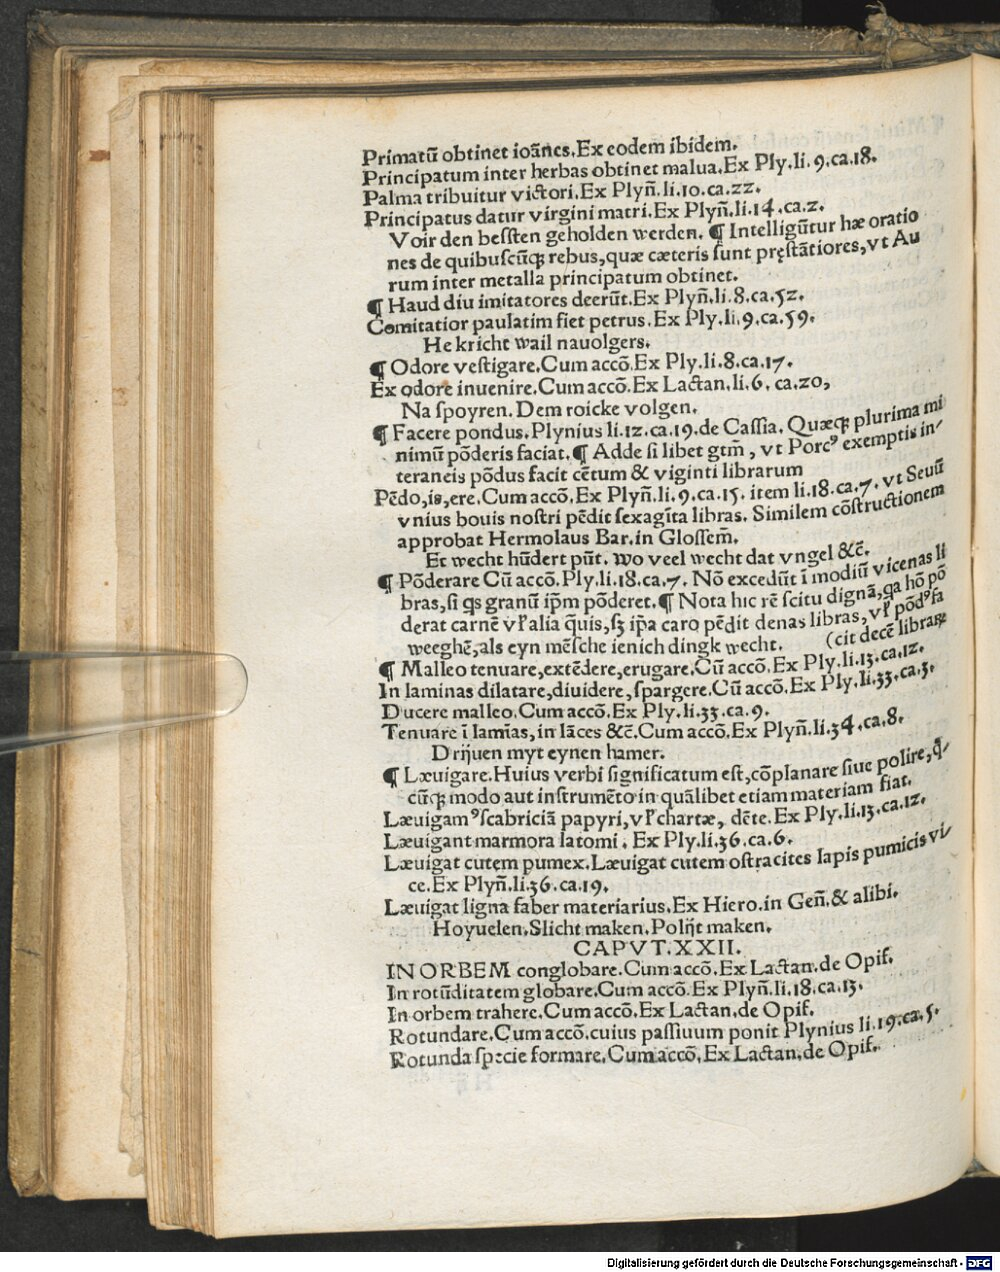 Primatū obtinet ioānes.Ex eodem ibidem.
Principatum inter herbas obtinet malua.Ex Ply.li.9.ca.18.
Palma tribuitur victori.Ex Plyñ.li.10.ca.22.
Principatus datur virgini matri.Ex Plyñ.li.14.ca.2.
Voir den bessten geholden werden. ¶ Intelligūtur hæ oratio
nes de quibuscūqꝫ rebus,quæ cæteris sunt pręstātiores,vt Au
rum inter metalla principatum obtinet.
¶ Haud diu imitatores deerūt.Ex Plyñ.li.8.ca.52.
Comitatior paulatim fiet petrus.Ex Ply.li.9.ca.59.
He kricht wail nauolgers.
¶ Odore vestigare.Cum accō.Ex Ply.li.8.ca.17.
Ex odore inuenire.Cum accō.Ex Lactan.li.6.ca.20,
Na spoyren. Dem roicke volgen.
¶ Facere pondus.Plynius li.12.ca.19.de Cassia. Quæqꝫ plurima mi
nimū pōderis faciat.¶ Adde si libet gtm̄, vt Porcꝰ exemptis in/
teraneis pōdus facit cētum & viginti librarum
Pēdo,is,ere.Cum accō.Ex Plyñ.li.9.ca.15. item li.18.ca.7. vt Seuū
vnius bouis nostri pēdit sexagīta libras. Similem cōstructionem
approbat Hermolaus Bar.in Glossem̄.
Et wecht hūdert pūt. wo veel wecht dat vngel &c̄.
¶ Pōderare Cū accō.Ply.li.18.ca.7. Nō excedūt ī modiū vicenas li
bras,si qs granū ip̄m pōderet.¶ Nota hic rē scitu dignā,qa hō pō
derat carnē vꝉ alia q̄uis,sꝫ ip̄a caro pēdit denas libras,vꝉ pōdꝰ fa
weeghē,als eyn mēsche ienich dingk wecht. (cit decē libraꝝ
¶ Malleo tenuare,extēdere,erugare.Cū accō.Ex Ply.li.13.ca.12.
In laminas dilatare,diuidere,spargere.Cū accō.Ex Ply.li.33.ca.3.
Ducere malleo.Cum accō.Ex Ply.li.33.ca.9.
Tenuare ī lamīas,in lāces &c̄.Cum accō.Ex Plyñ.li.34.ca.8.
Drijuen myt eynen hamer.
¶ Læuigare.Huius verbi significatum est,cōplanare siue polire,q̄/
cūqꝫ modo aut instrumēto in quālibet etiam materiam fiat.
Læuigamꝰ scabriciā papyri,vꝉ chartæ, dēte.Ex Ply.li.13.ca.12.
Læuigant marmora latomi. Ex Ply.li.36.ca.6.
Læuigat cutem pumex.Læuigat cutem ostracites lapis pumicis vi/
ce.Ex Plyñ.li.36.ca.19.
Læuigat ligna faber materiarius.Ex Hiero.in Geñ.& alibi.
Hoyuelen.Slicht maken.Polijt maken.
CAPVT.XXII.
IN ORBEM conglobare.Cum accō.Ex Lactan.de Opif.
In rotūditatem globare.Cum accō.Ex Plyñ.li.18.ca.13.
In orbem trahere.Cum accō.Ex Lactan.de Opif.
Rotundare.Cum accō.cuius passiuum ponit Plynius li.19.ca.5.
Rotunda specie formare.Cum accō.Ex Lactan.de Opif.
Digitalisierung gefördert durch die Deutsche Forschungsgemeinschaft - DFG